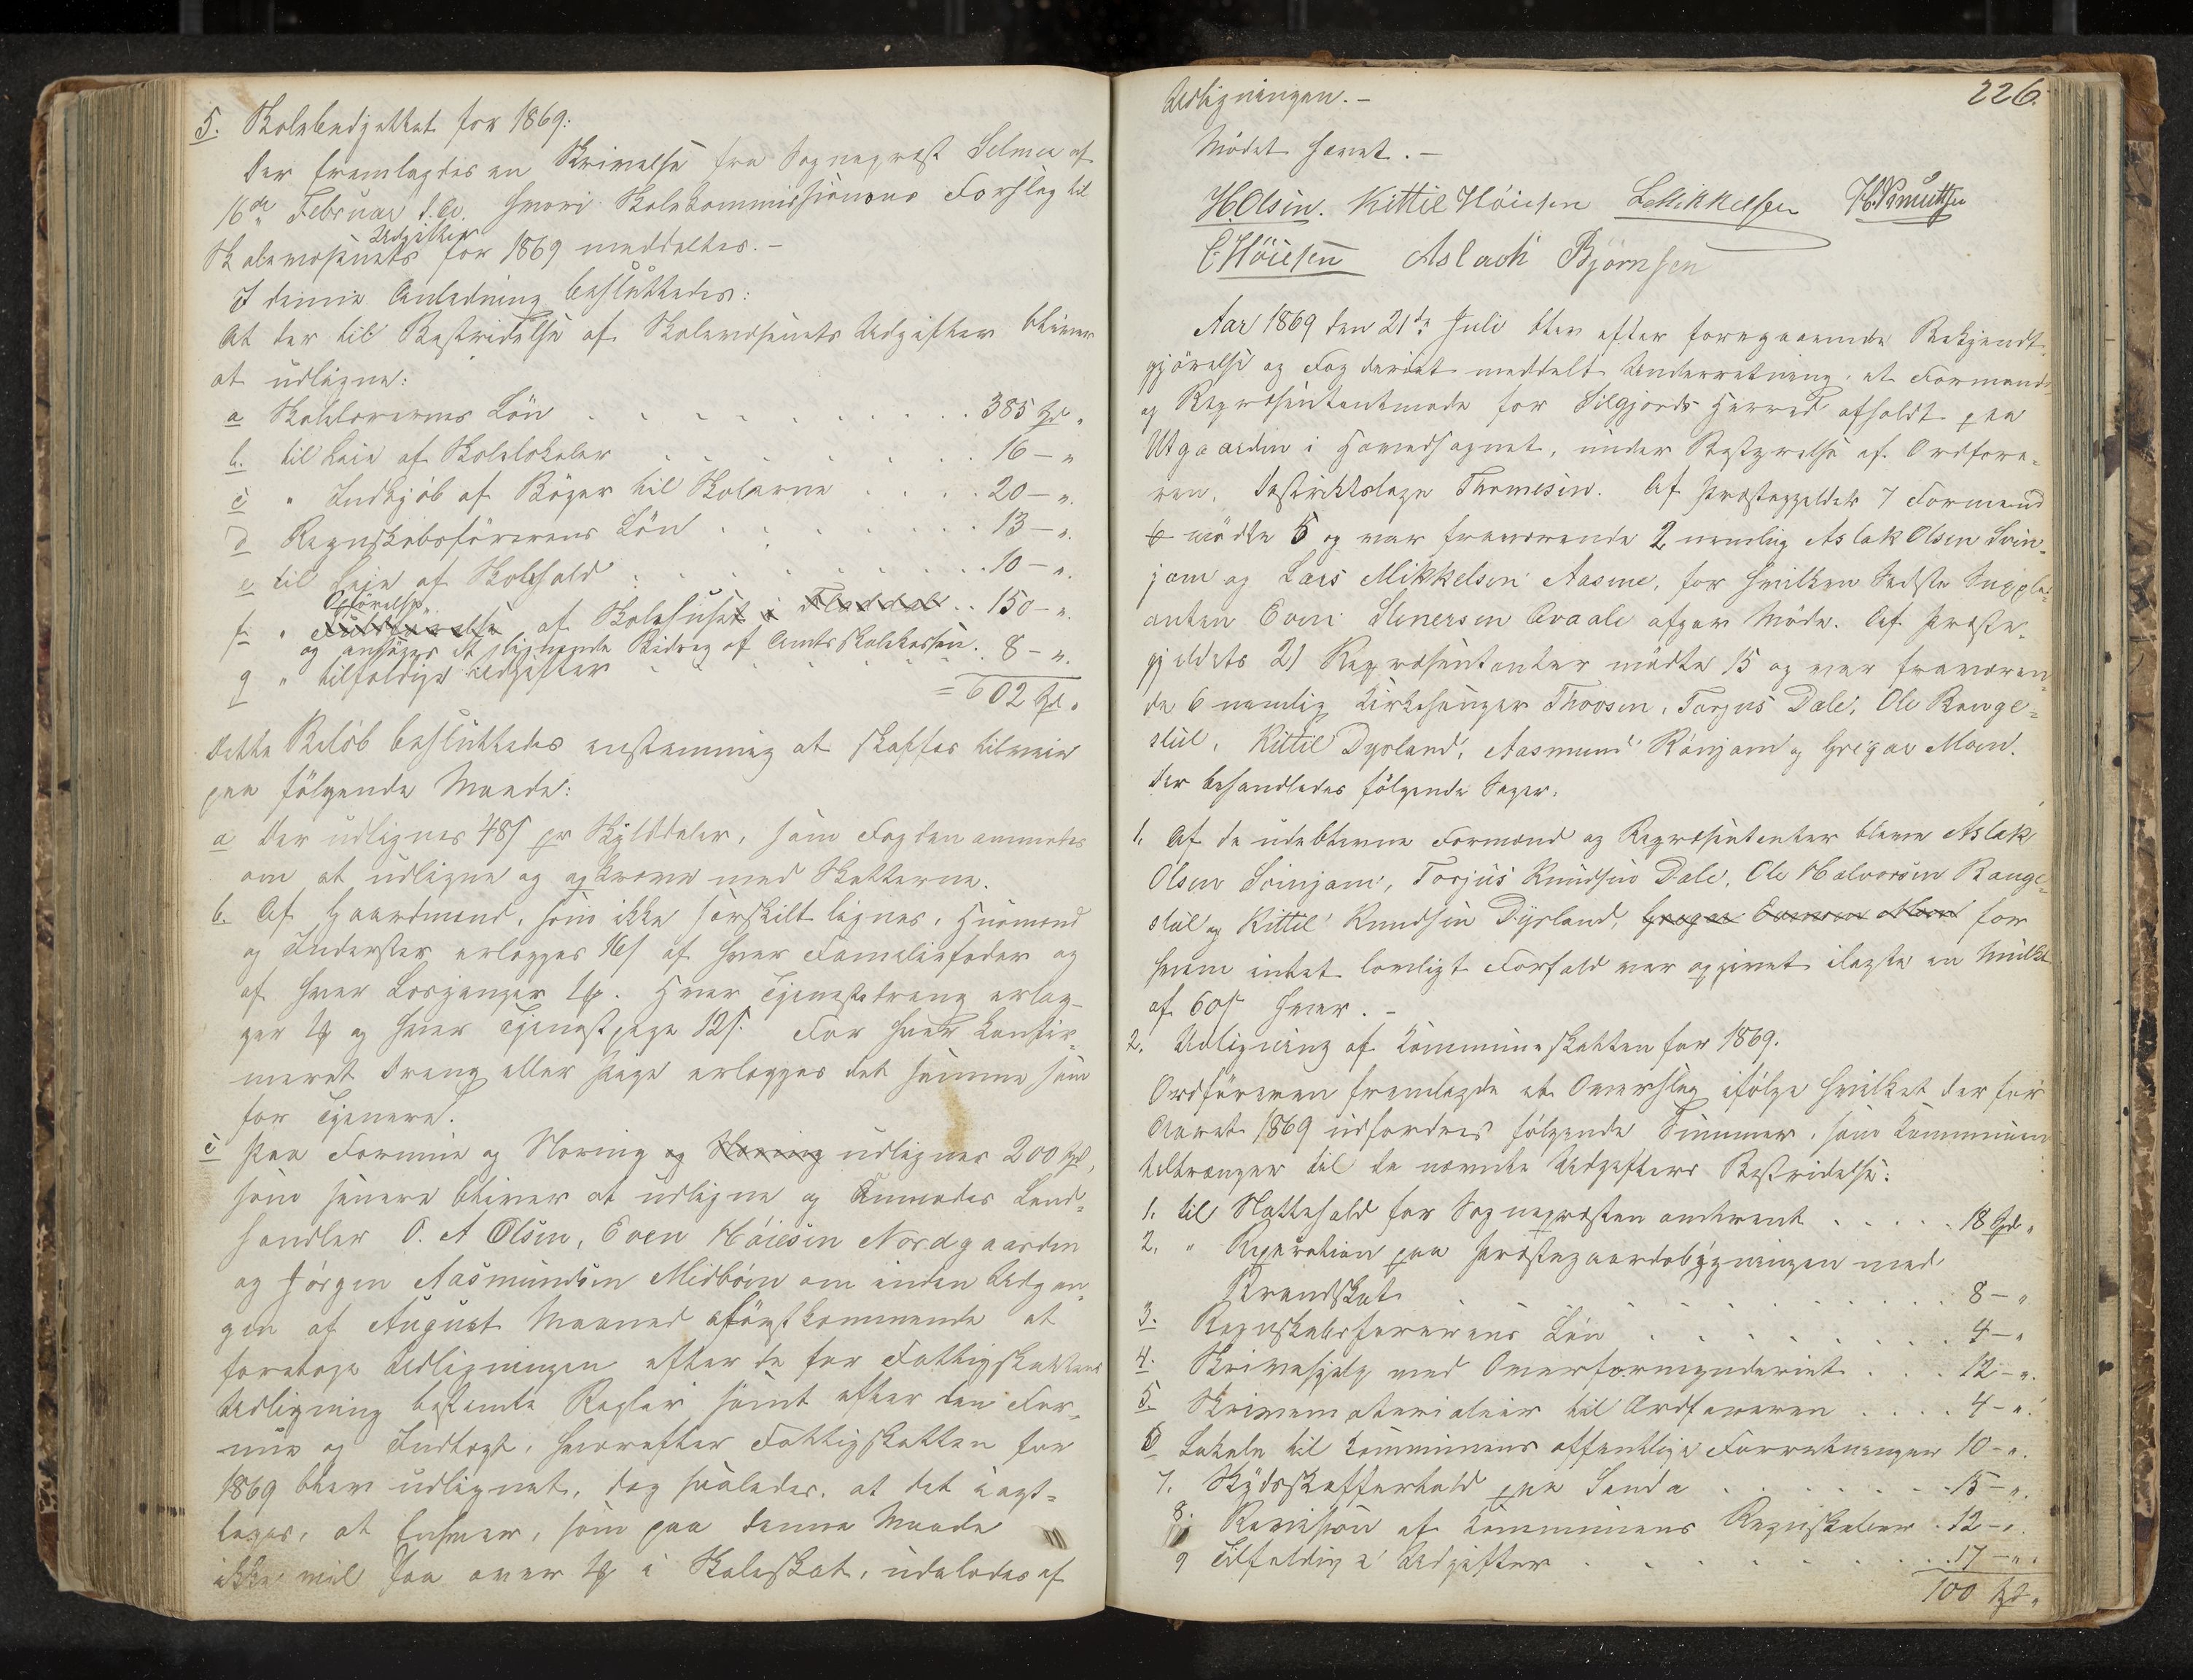 5. Skolebudjettet for 1869:
Der fremlagdes en Skrivelse fra Sogneprest Selmer af
16de Februar d.A. hvori Skolekommissionens Forslag til
Udgifter
Skolevæsenets for 1869 meddeltes.-
I denne Anledning besluttedes:
At der til Bestridelse af Skolevæsenets Udgifter bliver
at udligne:
a Skolelærernes Lön . . . . 385 Spd "
b. til Leie af Skolelokaler . . . . 16 - "
c " Indkjöb af Böger til Skolerne . . . . 20 - ".
d Regnskabsförerens Lön . . . . 13 - ".
e til Leie af Skolehold . . . . 10 - ".
Opförelse
f. " af Skolehuset i Flatdal . . 150 - ".
og ansöges et lignende Bidrag af Amtsskolekassen.
g " tilfældige Udgifter . . . . 8 - ".
= 602 Spd. "
Dette Belöb besluttedes enstemmig at skaffes tilveie
paa fölgende Maade:
a Der udlignes 48 s pr Skylddaler, som Fogden anmodes
om at udligne og opkræve med Skatterne.
b. Af Gaardmænd, som ikke særskilt lignes, Husmænd
og Inderster erlægges 16 s af hver Familiefader og
af hver Losjænger 1 ort. Hver Tjenestedreng erlæg-
ger 1 ort og hver Tjenestpige 12 s. For hver konfir-
meret Dreng eller Pige erlægges det samme som
for Tjenere.
c Paa Formue og Næring og Næring udlignes 200 Spd,
som senere bliver at udligne og Anmodes Land-
handler O. A Olsen, Even Höiesen Nordgaarden
og Jörgen Aasmundsen Midböen om inden Udgan-
gen af August Maaned förstkommende at
foretage Udligningen efter de for Fattigskattens
Udligning bestemte Regler samt efter den For-
mue og Indtægt, hvorefter Fattigskatten for
1869 blev udlignet, dog saaledes, at det iagt-
tages, at Enhver, som paa denne Maade
ikke vil faa over 1 ort i Skoleskat, udelades af
226.
Udligningen.-
Mödet hævet.-
H. Olsen. Kittil Höiesen L Mikkelsen H. Knudtsen
E. Höiesen Aslach Björnsen
Aar 1869 den 21de Juli blev efter foregaaende Bekjendt-
gjörelse og Fogderiet meddelt Underretning, et Formands
og Repræsentantmöde for Silgjords Herred afholdt paa
Utgaarden i Hovedsognet, under Bestyrelse af Ordföre-
ren, Distriktslæge Thomesen. Af Præstegjeldets 7 Formænd
mödte 5 og var fraværende 2 nemlig Aslak Olsen Svin-
jom og Lars Mikkelsen Aasine, for hvilken Sidste Supple-
anten Even Stenersen Aavale afgav Möde. Af Præste-
gjeldets 21 Repræsentanter mödte 15 og var fraværen-
de 6 nemlig Kirkesanger Thorsen, Torjus Dale, Ole Bange-
stul, Kittil Dyrland, Aasmund Rönjom og Gregar Moen.
Der behandledes fölgende Sager.
1. Af de udeblevne Formænd og Repræsentanter bleve Aslak
Olsen Svinjom, Torjus Knudsen Dale, Ole Halvorsen Bange-
stul og Kittil Knudsen Dyrland, Gregar Evensen Moen for
hvem intet lovligt Forfald var opgivet ilagte en Mulkt
af 60 s hver.-
2. Udligning af Kommuneskatten for 1869.
Ordföreren fremlagde et Overslag ifölge hvilket der for
Aaret 1869 udfordres fölgende Summer, som Kommunen
tiltrænger til de nævnte Udgifters Bestridelse:
1. til Nattehold for Sognepræsten omtrent . . . . 18 Spd "
2. " Reparation paa Præstegaardsbygningen med
Brandskat . . . . 8 - "
3. Regnskabsförerens Lön . . . . 4 - "
4. Skrivehjelp ved Overformynderiet . . . 12 - ".
5. Skrivematerialier til Ordföreren . . . . 4 - ".
6 Lokale til Kommunens offentlige Forretninger 10 - ".
7. Skydsskafferhold paa Sanda . . . . 15 - ".
8. Revision af Kommunens Regnskaber . 12 - ".
9 Tilfældige Udgifter . . . . 17 - ".
100 Spd "